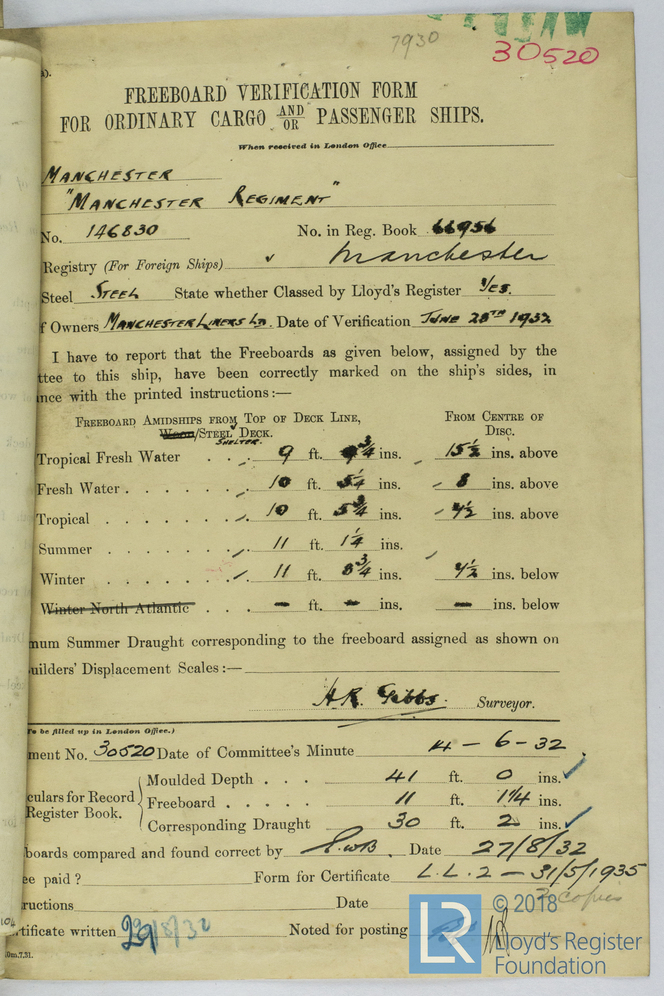 7930
30520
FREEBOARD VERIFICATION FORM
FOR ORDINARY CARGO AND/OR PASSENGER SHIPS.
When received in London Office
MANCHESTER
"MANCHESTER REGIMENT"
No. 146830 No. in Reg. Book 66956
Registry (For Foreign Ships) Manchester
Steel STEEL State whether Classed by Lloyd's Register YES.
f Owners MANCHESTER LINERS LD. Date of Verification JUNE 28TH 1932
I have to report that the Freeboards as given below, assigned by the
ttee to this ship, have been correctly marked on the ship's sides, in
nce with the printed instructions:—
FREEBOARD AMIDSHIPS FROM TOP OF DECK LINE, FROM CENTRE OF
WOOD/STEEL DECK. DISC.
SHELTER.
Tropical Fresh Water 9 ft. 9 3/4 ins. 15 1/2 ins. above
Fresh Water 10 ft. 5 1/4 ins. 8 ins. above
Tropical 10 ft. 8 3/4 ins. 4 1/2 ins. above
Summer 11 ft. 1 1/4 ins.
Winter 11 ft. 5 3/4 ins. 4 1/2 ins. below
Winter North Atlantic - ft. - ins. - ins. below
mum Summer Draught corresponding to the freeboard assigned as shown on
uilders' Displacement Scales:—
H.R. Gibbs. Surveyor.
To be filled up in London Office.)
ment No. 30520 Date of Committee's Minute 14-6-32
culars for Record Register Book.
Moulded Depth 41 ft. 0 ins.
Freeboard 11 ft. 1 1/4 ins.
Corresponding Draught 30 ft. 2 ins.
boards compared and found correct by Date 27/8/32
ee paid? Form for Certificate L.L.2 - 31/5/1935
3 copies
ructions Date
rtificate written 29/8/32 Noted for posting
0m.7,31.
© 2018
LR
Lloyd's Register
Foundation